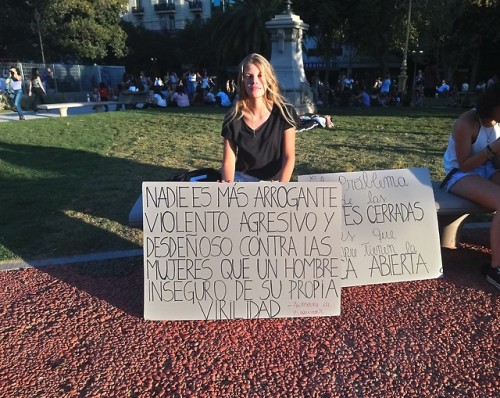 NADIE ES MAS ARROGANTE
VIOLENTO AGRESIVO Y
DESDEÑOSO CONTRA LAS
MUJERES QUE UN HOMBRE
INSEGURO DE SU PROPIA
VIRILIDAD
de las
ES CERRADAS
que
la
A ABIERTA